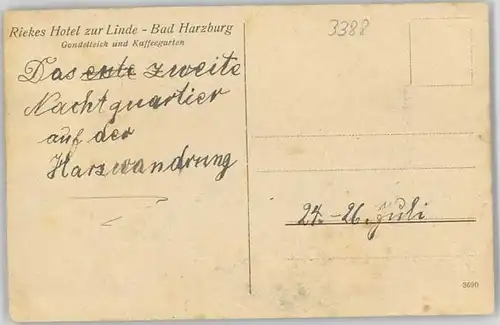 Riekes Hotel zur Linde - Bad Harzburg
Gondelteich und Kaffeegarten
3388
Das erste zweite
Nachtquartier
auf der
Harzwandrung
24-26. Juli
3690